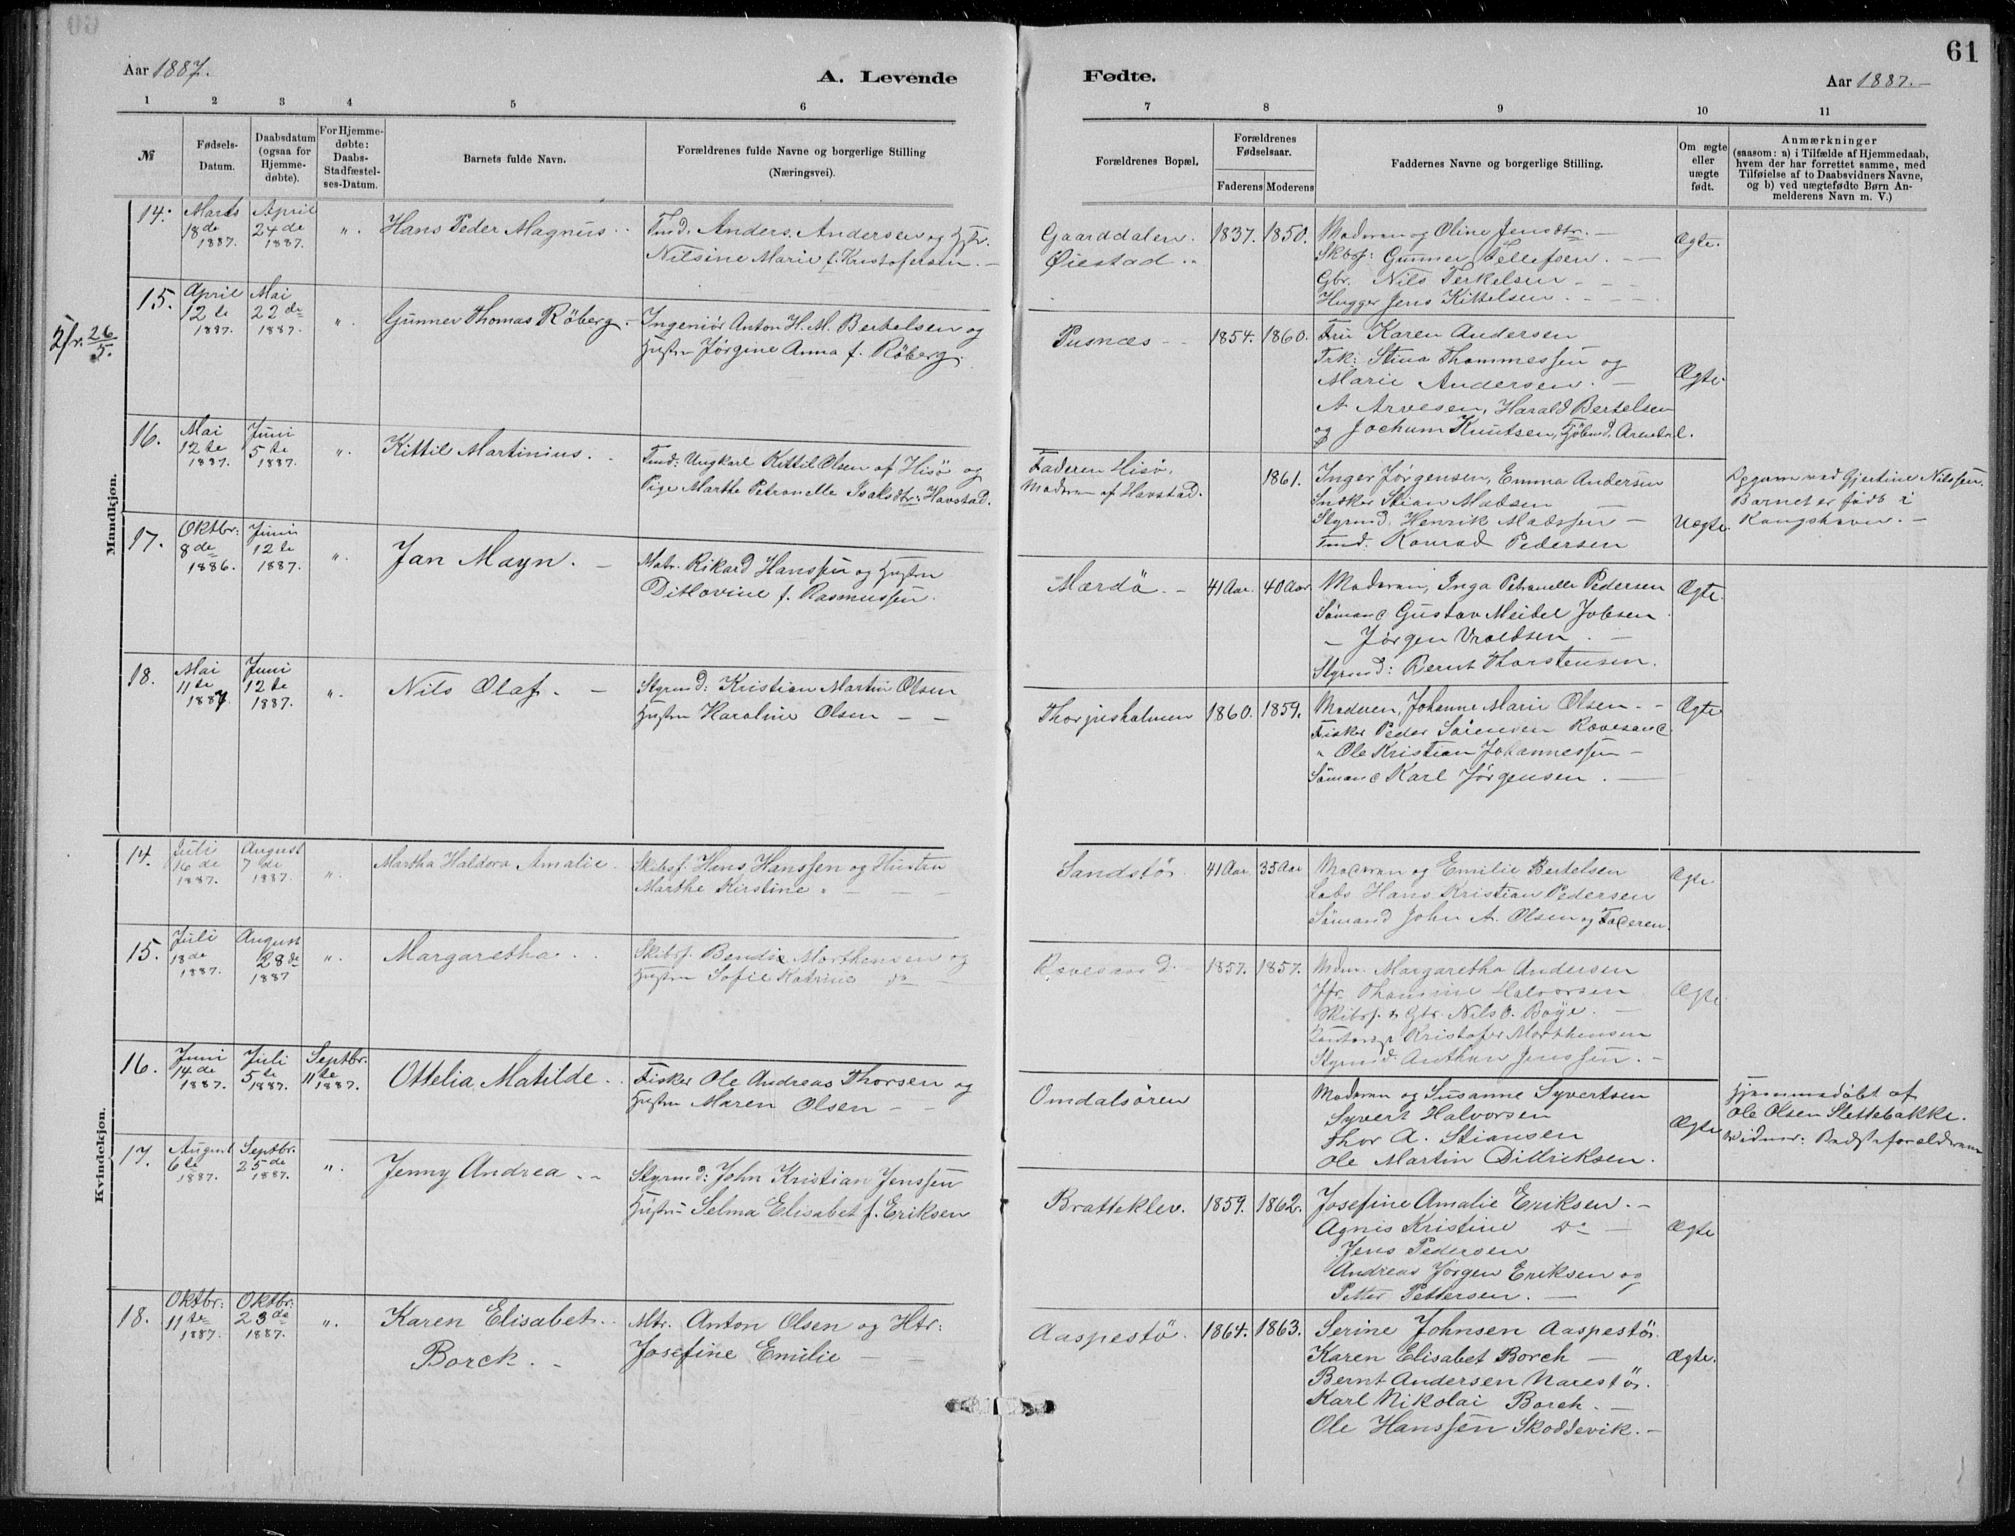 61
Aar 1887.
A. Levende
Fødte.
Aar 1887.—
1 2 3 4 5 6
7 8 9 10 11
№
Fødsels-
Datum.
Daabsdatum
(ogsaa for
Hjemme-
døbte).
For Hjemme-
døbte:
Daabs-
Stadfæstel-
ses-Datum.
Barnets fulde Navn.
Forældrenes fulde Navne og borgerlige Stilling
(Næringsvei).
Forældrenes Bopæl.
Forældrenes
Fødselsaar.
Faderens
Moderens
Faddernes Navne og borgerlige Stilling.
Om ægte
eller
uægte
født.
Anmærkninger
(saasom: a) i Tilfælde af Hjemmedaab,
hvem der har forrettet samme, med
Tilføielse af to Daabsvidners Navne,
og b) ved uægtefødte Børn An-
melderens Navn m. V.)
Mandkjøn.
14.
Marts
18de
1887.
April
24de
1887.
".
Hans Peder Magnus.
Tmd. Anders Andersen og Hstr.
Nilsine Marie f. Kristofersen.—
Gaarddalen.
Øiestad
1837. 1850.
Moderen og Oline Jensdtr.—
Skbsf: Gunner Tellefsen.
Gbr. Nils Terkelsen
Hugger Jens Kittelsen
Ægte.
26/5.
15.
April
12te
1887.
Mai
22de
1887.
".
Gunner Thomas Röberg.
Ingeniör Anton H. M. Bertelsen og
Hustru Jørgine Anna f. Röberg.
Pusnæs
1854. 1860.
Fru Karen Andersen
Frk: Stina Thommessen og
Marie Andersen.—
A Arvesen, Harald Bertelsen
og Jochum Knutsen, Arendal.
Ægte.
16.
Mai
12te
1887.
Juni
5te
1887.
".
Kittil Martinius.
Tmd: Ungkarl Kittil Olsen af Hisö og
Pige Marthe Petronelle Isaksdtr: Havstad.
Faderen Hisö,
Moderen af Havstad.
1861.
Inger Jørgensen, Emma Andersen
Sndker Stian Madsen
Styrmd. Henrik Madssen—
Tmd: Konrad Pedersen
Uægte.
Gjertine Nilssen.
Barnet er født i
Kongshavn.—
17.
Oktbr:
8de
1886.
Juni
12te
1887.
".
Jan Mayn.—
Matr. Rikard Hanssen og Hustru
Ditlovine f. Rasmussen.
Mærdö.
41 Aar. 40 Aar
Moderen, Inga Petronelle Pedersen
Sömand Gustav Meidel Jobsen
— Jørgen Vraldsen.—
Styrmd: Bernt Thorstensen.
Ægte.
18.
Mai
11te
1887.
Juni
12te
1887.
".
Nils Olaf.—
Styrmd: Kristian Martin Olsen
Hustru Karoline Olsen — —
Thorjusholmen
1860. 1859.
Moderen, Johanne Marie Olsen.
Fisker Peder Sörensen Rævesand.
" Ole Kristian Johannessen—
Sömand Karl Jørgensen.—
Ægte
Kvindekjøn.
14.
Juli
16de
1887.
August
7de
1887.
".
Martha Haldora Amalie.
Skibsf. Hans Hanssen og Hustru
Marthe Kirstine
Sandstø.
41 Aar. 35 Aar
Moderen og Emilie Bertelsen
Lods Hans Kristian Pedersen
Sömand John A. Olsen og Faderen.
Ægte.
15.
Juli
18de
1887.
August
28de
1887
".
Margaretha.
Skibsf. Bendix Morthensen og
Hustru Sofie Katrine do
Rævesand.
1857. 1857.
Mdm. Margaretha Andersen
Jfr. Thomine Halvorsen
Skibsf. & Gbr. Nils O. Boye.
Kristofer Morthensen
Styrmd. Anthon Jenssen.—
Ægte
16.
Juni
14de
1887.
Juli
5te
1887.
Septbr.
11te
1887.
Ottelia Matilde.
Fisker Ole Andreas Thorsen og
Hustru Maren Olsen —
Omdalsören
Moderen og Susanne Syvertsen
Syvert Halvorsen
Thor A. Stiansen
Ole Martin Didriksen.
Ægte
Hjemmedøbt af
Ole Olsen Slettebakke.
Vidner: Bedsteforeldrene
17.
August
6te
1887.
Septbr.
25de
1887.
".
Jenny Andrea.
Styrmd: John Kristian Jenssen
Hustru Selma Elisabet f. Eriksen
Bratteklev.
1859. 1862.
Josefine Amalie Eriksen.—
Agnis Kristine Do —
Jens Pedersen
Andreas Jørgen Eriksen og
Petter Pettersen.—
Ægte
18.
Oktbr:
11te
1887.
Oktbr:
23de
1887.
".
Karen Elisabet
Borch.
Mtr. Anton Olsen og Htr:
Josefine Emilie —
Aaspestö.
1864. 1863.
Serine Johnsen Aaspestö.
Karen Elisabet Borch —
Bernt Andersen Narestö.
Karl Nikolai Borch.—
Ole Hanssen Skoddevik.—
Ægte.